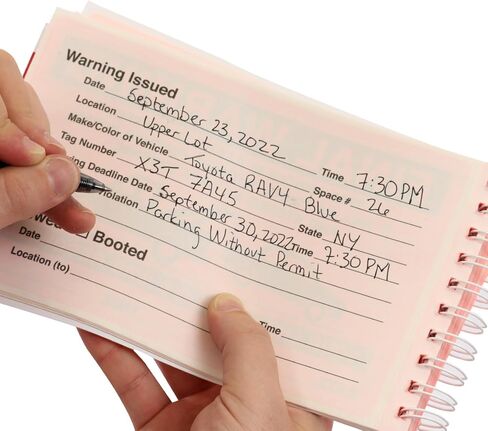 Warning Issued
Date September 23, 2022 Time 7:30 PM
Location Upper Lot Space # 26
Make/Color of Vehicle Toyota RAV4 Blue
Tag Number X3T 7A45 State NY
Deadline Date September 30, 2022 Time 7:30 PM
Parking Without Permit
Booted
Date Time
Location (to)